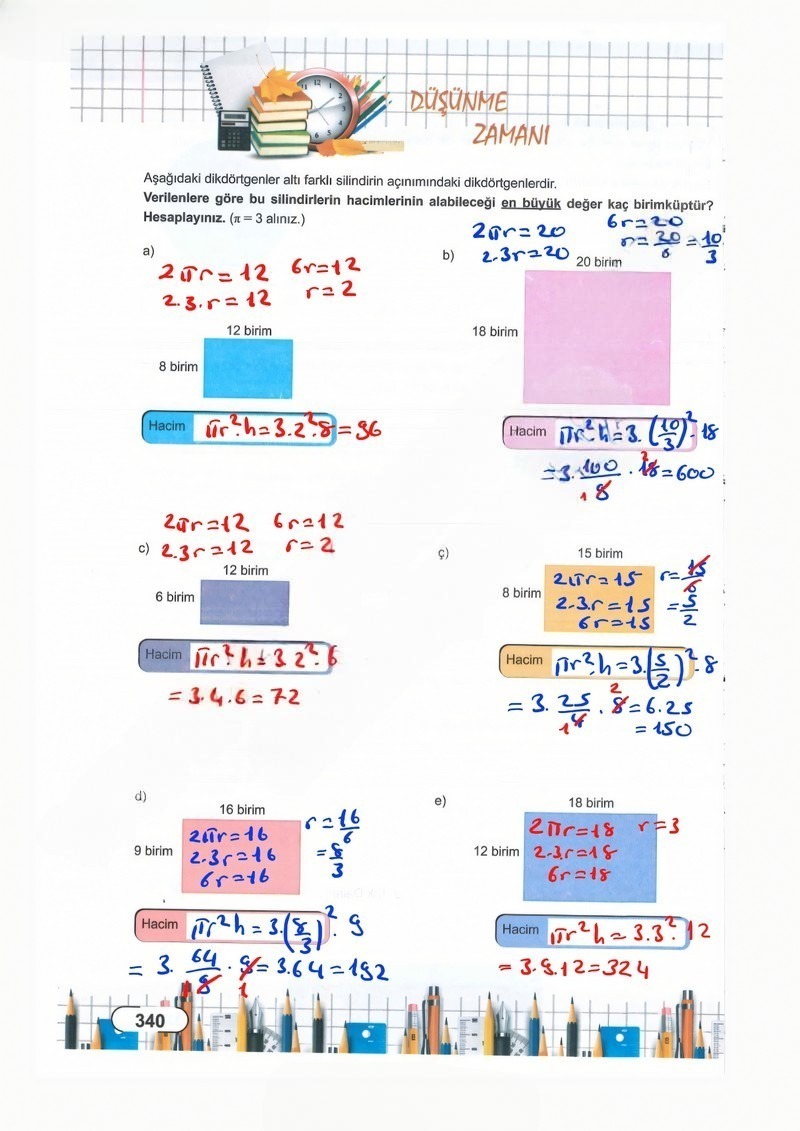 DÜŞÜNME
ZAMANI
Aşağıdaki dikdörtgenler altı farklı silindirin açınımındaki dikdörtgenlerdir.
Verilenlere göre bu silindirlerin hacimlerinin alabileceği en büyük değer kaç birimküptür?
Hesaplayınız. (π = 3 alınız.)
a)
2πr = 12 6r = 12
2.3.r = 12 r = 2
12 birim
8 birim
Hacim πr².h = 3.2².8 = 96
b)
2πr = 20 6r = 20
2.3r = 20 r = 20/6 = 10/3
20 birim
18 birim
Hacim πr².h = 3.(10/3)².18
= 3.100/9 . 18 = 600
1 2
c)
2πr = 12 6r = 12
2.3r = 12 r = 2
12 birim
6 birim
Hacim πr².h = 3.2².6
= 3.4.6 = 72
ç)
15 birim
8 birim
2πr = 15 r = 15/6
2.3.r = 15 = 5/2
6r = 15
Hacim πr².h = 3.(5/2)².8
= 3.25/4 . 8 = 6.25
1 2
= 150
d)
16 birim
9 birim
2πr = 16 r = 16/6
2.3r = 16 = 8/3
6r = 16
Hacim πr²h = 3.(8/3)².9
= 3.64/9 . 9 = 3.64 = 192
1 1
e)
18 birim
12 birim
2πr = 18 r = 3
2.3.r = 18
6r = 18
Hacim πr²h = 3.3².12
= 3.9.12 = 324
340